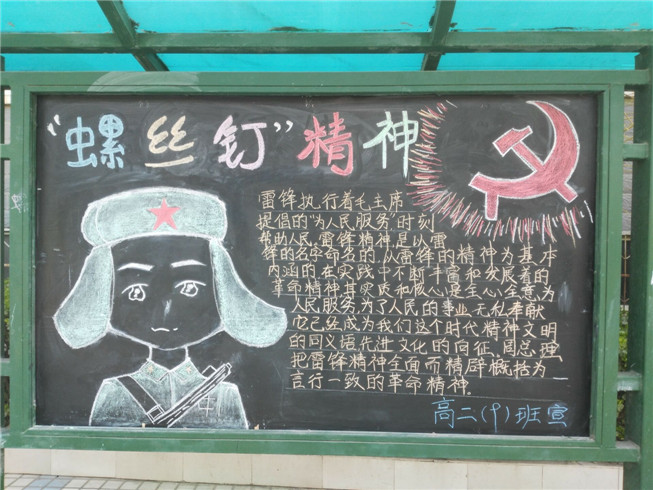 “螺丝钉”精神
雷锋执行着毛主席
提倡的“为人民服务”时刻
帮助人民。雷锋精神,是以雷
锋的名字命名的,从雷锋的精神为基本
内涵的,在实践中不断丰富和发展着的
革命精神其实质和核心是全心全意为
人民服务,为了人民的事业无私奉献
它已经成为我们这个时代精神文明
的同义语先进文化的向征。周总理
把雷锋精神全面而精辟概括为
言行一致的革命精神.
高二(9)班宣